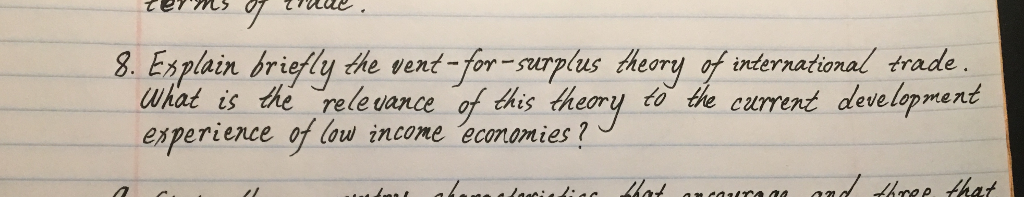 terms of trade.
8. Explain briefly the vent-for-surplus theory of international trade.
What is the relevance of this theory to the current development
experience of low income economies?
characteristics that encourage and three that